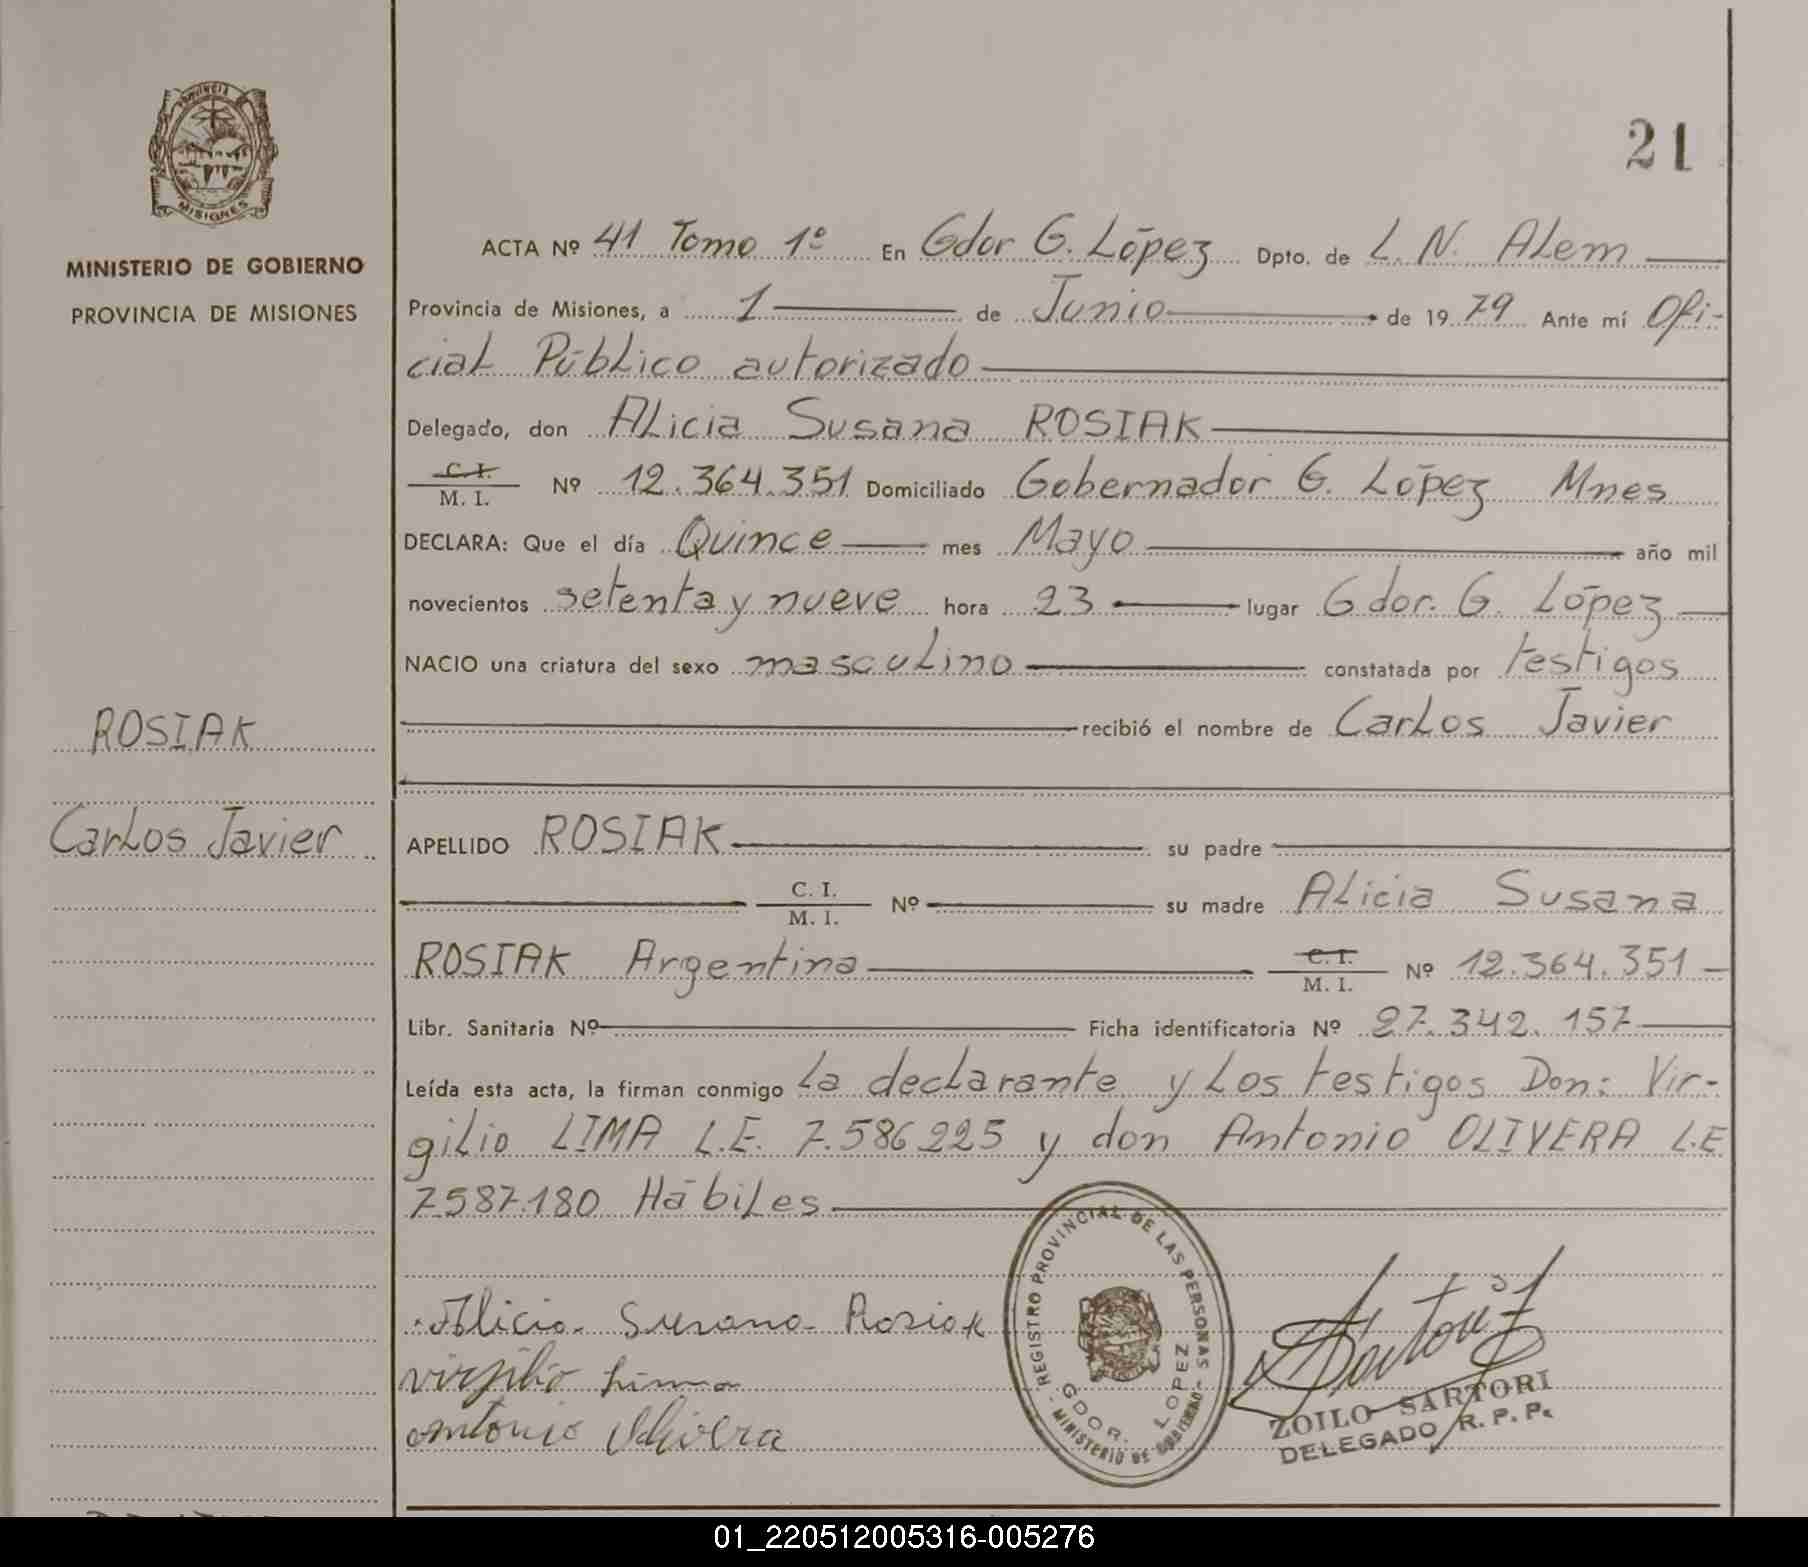 PROVINCIA DE
MISIONES
MINISTERIO DE GOBIERNO
PROVINCIA DE MISIONES
21
ACTA Nº 41 Tomo 1º En Gdor G. López Dpto. de L. N. ALem
Provincia de Misiones, a 1 de Junio de 1979 Ante mí Ofi-
ciaL PúbLico autorizado
Delegado, don ALicia Susana ROSIAK
C. I.
M. I. Nº 12.364.351 Domiciliado Gobernador G. López Mnes
DECLARA: Que el día Quince mes Mayo año mil
novecientos setenta y nueve hora 23 lugar Gdor. G. López
NACIO una criatura del sexo mascuLino constatada por testigos
recibió el nombre de CarLos Javier
ROSIAK
CarLos Javier
APELLIDO ROSIAK su padre
C. I.
M. I. Nº su madre ALicia Susana
ROSIAK Argentina C. I.
M. I. Nº 12.364.351
Libr. Sanitaria Nº Ficha identificatoria Nº 27.342.157
Leída esta acta, la firman conmigo La decLarante y Los testigos Don: Vir-
giLio LIMA L.E. 7.586225 y don Antonio OLIVERA L.E
7587.180 HábiLes
Alicia Susana Rosiak
virgilio Lima
antonio Olivera
REGISTRO PROVINCIAL DE LAS PERSONAS
GDOR. LOPEZ
MINISTERIO DE GOBIERNO
Sartori
ZOILO SARTORI
DELEGADO R. P. P.
01_220512005316-005276